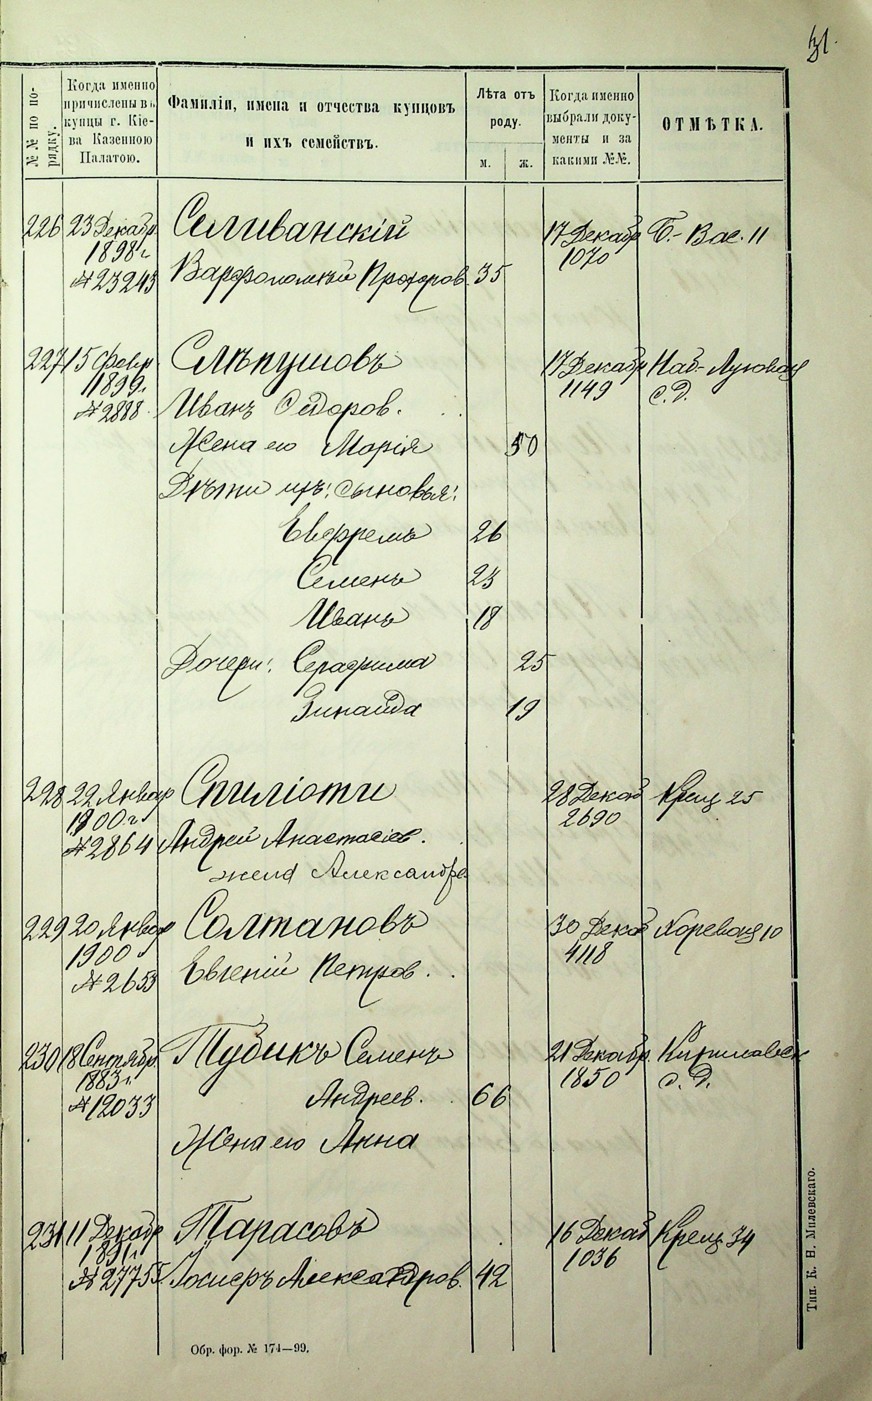 31.
№№ по по-
рядку.
Когда именно
причислены въ
купцы г. Кіе-
ва Казенною
Палатою.
Фамиліи, имена и отчества купцовъ
и ихъ семействъ.
Лѣта отъ
роду.
м. ж.
Когда именно
выбрали доку-
менты и за
какими №№.
ОТМѢТКА.
226 23 Декабр. Селиванскій 17 Декабр Б.-Вас. 11
1898 г. 1070
№ 23243 Варфоломей Прохоров. 35
227 15 февр. Слѣпушовъ 17 Декабр Наб-Луковая
1899 г. 1149 с. д.
№ 2888 Иванъ Сидоров.
Жена его Марія 50
Дѣти ихъ: сыновья:
Евфремъ 26
Семенъ 23
Иванъ 18
Дочери: Серафима 25
Зинаида 19
228 22 Январ Спиліоти 28 Декаб Крещ 25
1900 г. 2690
№ 2864 Андрей Анастасіев.
жена Александра
229 20 Январ Солтановъ 30 Декаб Хоревая 10
1900 4118
№ 2653 Евгеній Петров.
230 18 Сентябр. Тубикъ Семенъ 21 Декабр. Кириловск
1883 г. 1850 с. д.
№ 12033 Андреев. 66
Жена его Анна
231 11 Декабр Тарасовъ 16 Декаб Крещ 34
1891 г. 1036
№ 27755 Александров. 42
Обр. фор. № 174—99.
Тип. К. Н. Милевскаго.